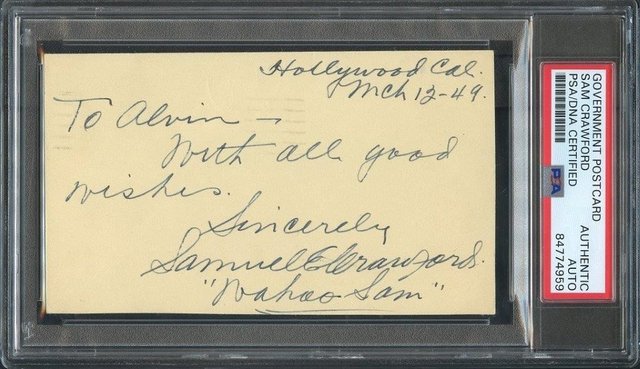 Hollywood Cal.
Mch 12-49.
To Alvin —
With all good
wishes.
Sincerely
Samuel E Crawford.
"Wahoo Sam"
GOVERNMENT POSTCARD
SAM CRAWFORD
PSA/DNA CERTIFIED
PSA
AUTHENTIC
AUTO
84774959